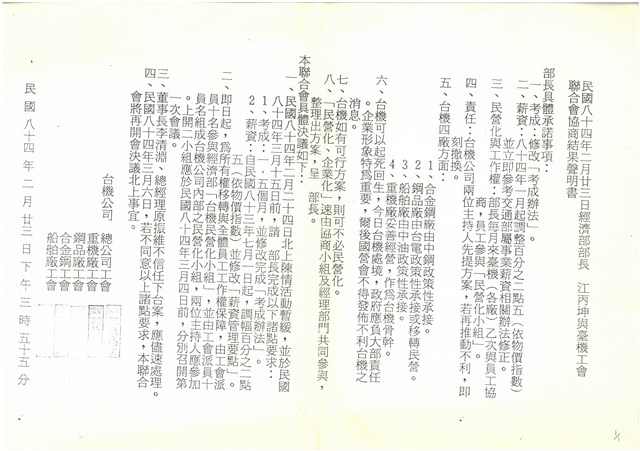 民國八十四年二月廿三日經濟部部長　江丙坤與臺機工會
聯合會協商結果聲明書
部長具體承諾事項：
一、考成：修改「考成辦法」。
二、薪資：八十四年一月起調整百分之二點五（依物價指數）
並立即參考交通部屬事業薪資相關辦法修正。
三、民營化與工作權：部長每月來臺機（各廠）乙次與員工協
商，員工參與「民營化小組」。
四、責任：台機公司兩位主持人先提方案，若再推動不利，即
刻撤換。
五、台機四廠方面：
1 合金鋼廠由中鋼政策性承接。
2 鋼品廠由台電政策性承接或移轉民營。
3 船舶廠由中油政策性承接。
4 重機廠妥善經營，作為台機骨幹。
六、台機可以起死回生，今日台機處境，政府應負大部責任
。企業形象特為重要，爾後國營會不得發佈不利台機之
消息。
七、台機如有可行方案，則可不必民營化。
八、「民營化、企業化」速由協商小組及經理部門共同參與，
整理出方案，呈　部長。
本聯合會具體決議如下：
一、民國八十四年二月二十四日北上陳情活動暫緩，並於民國
八十四年三月十五日前，請　部長完成以下諸點要求：
1、考成：一．五個月，並修改完成「考成辦法」。
2、薪資：自民國八十三年七月一日起，調幅百分之二點
五（依物價指數）並修改「薪資管理要點」。
二、即日起，為所有權移轉與全體員工工作權保障，由工會派
員十名參與經濟部「台機民營化小組」，並由工會派員十
員名組成台機公司內部之民營化小組，兩位主持人應參加
。上開二小組應於民國八十四年三月四日前，分別召開第
一次會議。
三、董事長李清淵、總經理原振維不信任下台案，應儘速處理。
四、民國八十四年三月六日，若不同意以上諸點要求，本聯合
會將再開會決議北上事宜。
台機公司　總公司工會
重機廠工會
鋼品廠工會
合金鋼工會
船舶廠工會
民國八十四年二月廿三日下午三時五十五分